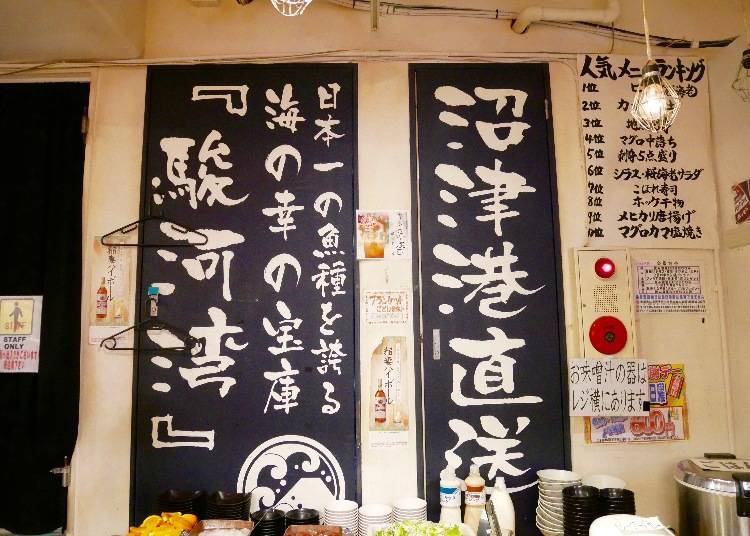 日本一の魚種を誇る
海の幸の宝庫
『駿河湾』
沼津港直送
人気メニューランキング
1位
2位
3位
4位 マグロ中落ち
5位 刺身5点盛り
6位 シラス・桜海老サラダ
7位 こぼれ寿司
8位 ホッケ干物
9位 メヒカリ唐揚げ
10位 マグロカマ塩焼き
お味噌汁の器は
レジ横にあります
STAFF
ONLY
稲妻ハイボール
稲妻ハイボール
ブランケット